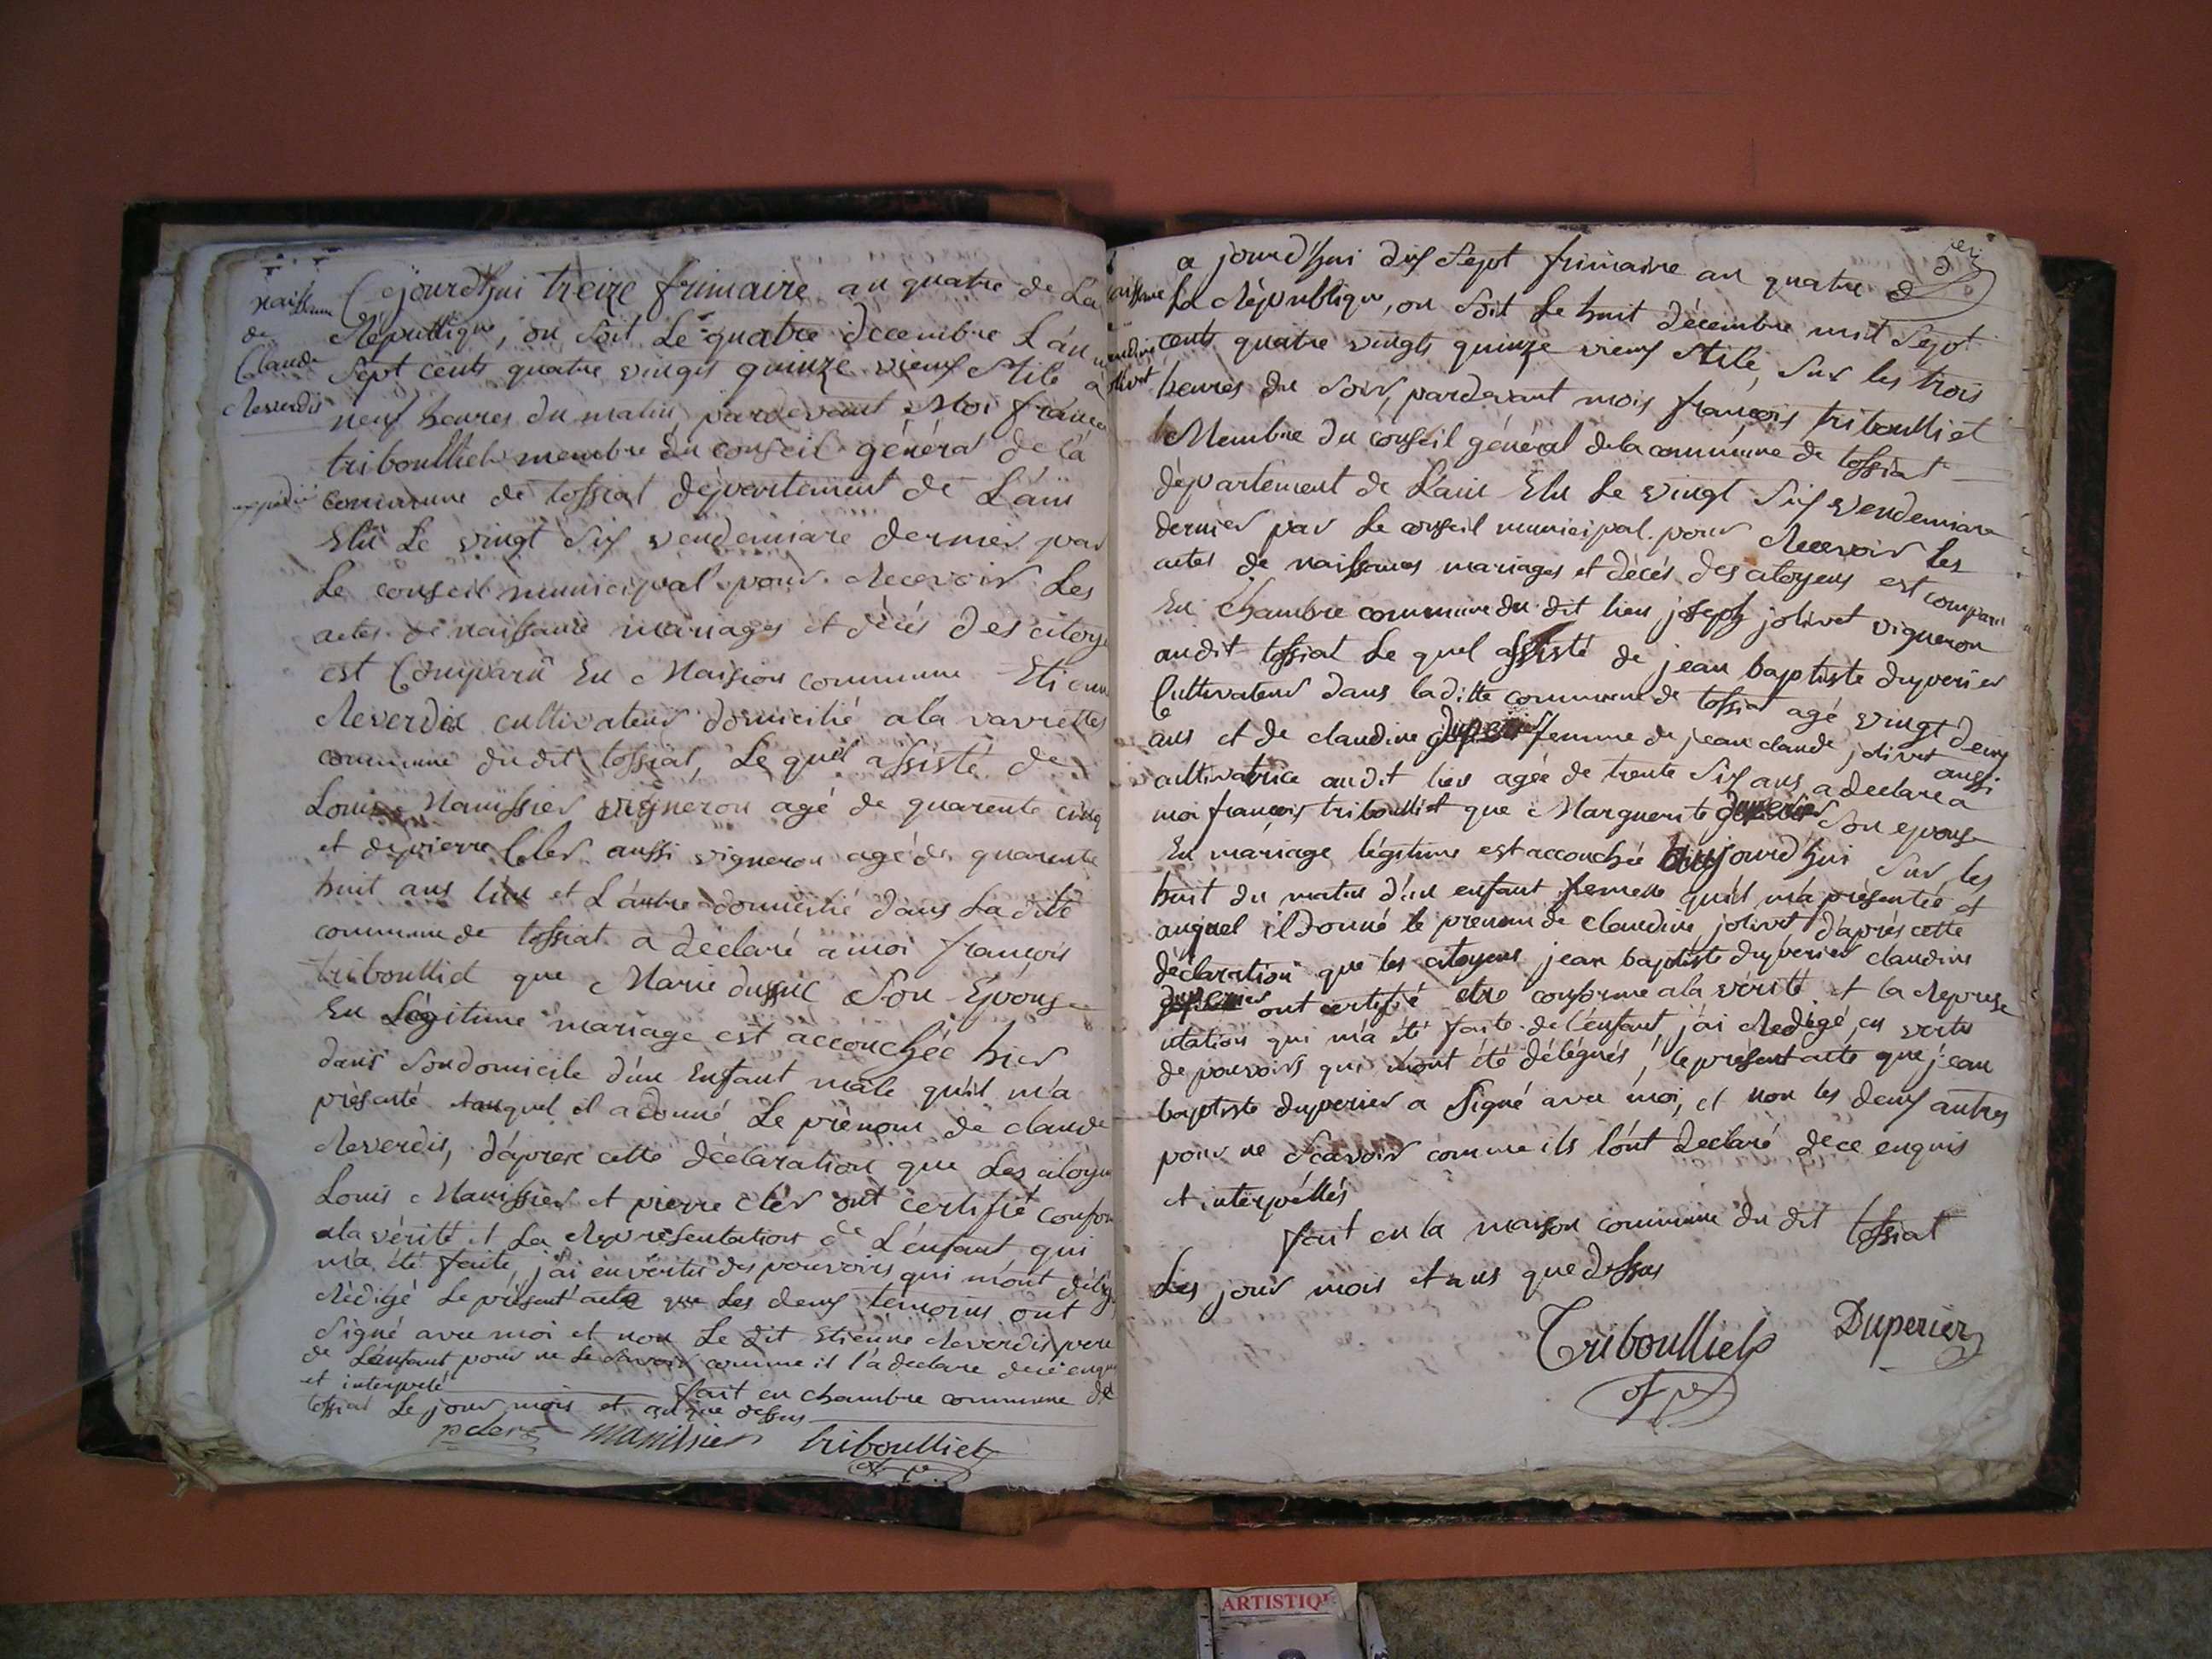 naissance
de
Claude
Reverdis
expedié
Cejourd'hui treize frimaire an quatre de La
République, ou soit Le quatre decembre L'an
Sept cents quatre vingts quinze vieux Stile a
neuf heures du matin, pardevant Moi françois
triboulliet membre du conseil général de la
commune de tossiat département de L'ain
Elu Le vingt Six vendemiaire dernier par
Le conseil municipal pour Recevoir Les
actes de naissance mariages et décés des citoye
est Comparu En Maison commune Etienne
Reverdix cultivateur domicilié a la vavrettes
commune du dit tossiat, Le quel assisté de
Louis Manissier vigneron agé de quarente cinq
et de pierre Cler aussi vigneron agé de quarente
huit ans L'un et L'autre domicilié dans La dite
commune de tossiat a déclaré a moi françois
triboulliet que Marie Son Epouse
En Légitime mariage est accouchée hier
dans Son domicile d'un Enfant male qu'il m'a
présenté et auquel il a donné Le prénom de claude
Reverdis, d'aprere cette déclaration que Les citoyen
Louis Manissier et pierre cler ont certifié confor
a la vérité et La Représentation de L'enfant qui
m'a été faite, j'ai en vertu des pouvoirs qui m'ont délég
Rédigé Le présent acte que Les deux témoins ont
Signé avec moi et non Le dit Etienne Reverdis pere
de L'enfant pour ne Le Savoir comme il l'a declare de ce enquis
et interpelé fait en chambre commune de
tossiat Le jour mois et an que dessus
p cler Manissier triboulliet
a jourd'hui dix Sept frimaire an quatre d
La République, ou Soit Le huit décembre mil Sept
cents quatre vingts quinze vieux Stile, Sur les trois
heures du Soir, pardevant mois françois triboulliet
Membre du conseil général de la commune de tossiat
département de L'ain Elu Le vingt Six vendemiaire
dernier par Le conseil municipal pour Recevoir Les
actes de naissances mariages et décés des citoyens est comparu
En Chambre commune du dit lieu joseph jolivet vigneron
au dit tossiat Le quel assisté de jean baptiste duperier
Cultivateur dans la ditte commune de tossiat agé vingt deux
ans et de claudine duperier femme de jean claude jolivet aussi
cultivatrice au dit lieu agée de trente Six ans a declare a
moi françois triboulliet que Marguerite duperier Son epouse
En mariage légitime est accouchée aujourd'hui Sur les
huit du matin d'un enfant femelle qu'il m'a présentée et
auquel il donné le prenom de claudine jolivet d'aprés cette
déclaration que les citoyens jean baptiste duperier claudine
duperier ont certifié etre conforme a la vérité et la represe
ntation qui m'a été faite de l'enfant j'ai Redigé en vertu
de pouvoirs qui m'ont été délégués, le présent acte que jean
baptiste duperier a Signé avec moi, et non les deux autres
pour ne Scavoir comme ils l'ont declaré de ce enquis
et interpéllés
fait en la maison commune du dit tossiat
Les jour mois et ans que dessus
Triboulliet Duperier